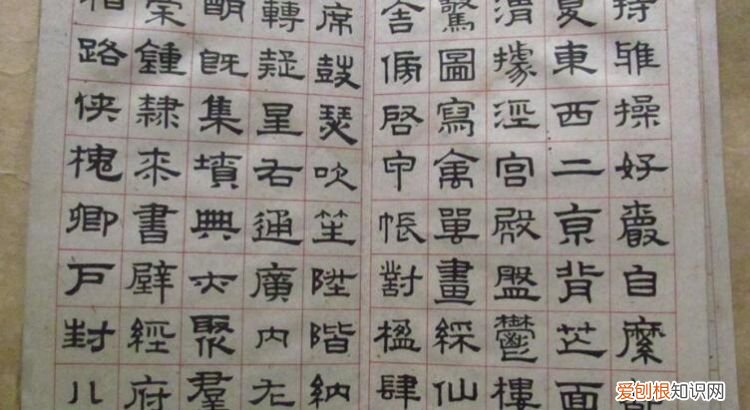 持雅操好爵自縻
夏東西二京背芒面
渭據涇宮殿盤鬱樓
驚圖寫禽畫綵仙
舍傍啓甲帳對楹肆
席鼓瑟吹笙陞階納
轉疑星右通廣內左
明既集墳典亦聚羣
鍾隸來書壁經府
相路俠槐卿戶封八
爱刨根知识网